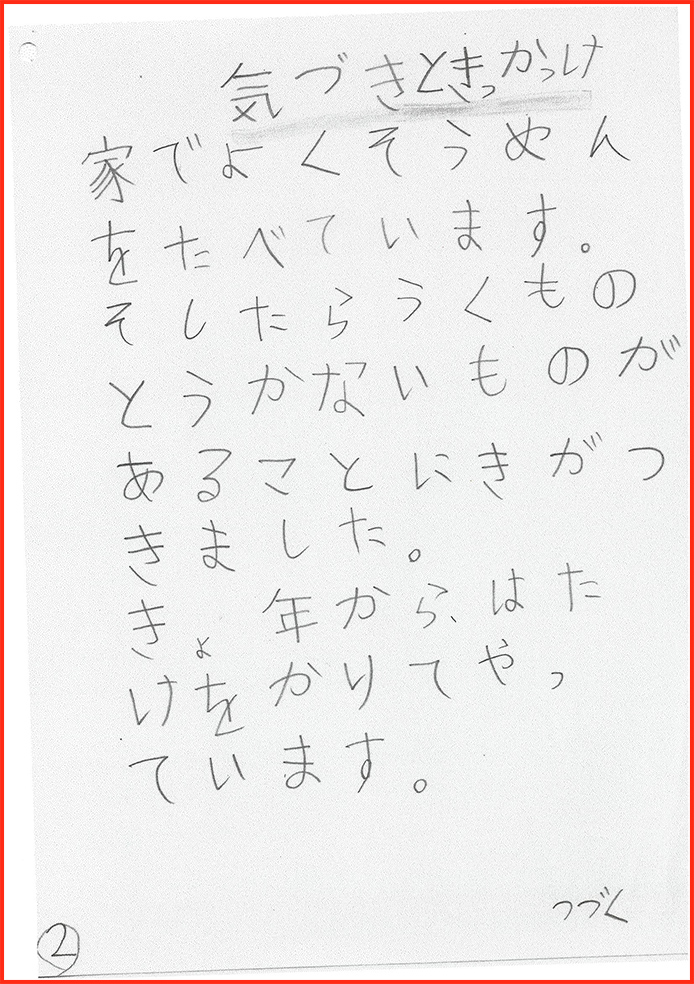 気づきときっかっけ
家でよくそうめん
をたべています。
そしたらうくもの
とうかないものが
あることにきがつ
きました。
きょ年から、はた
けをかりてやっ
ています。
つづく
2